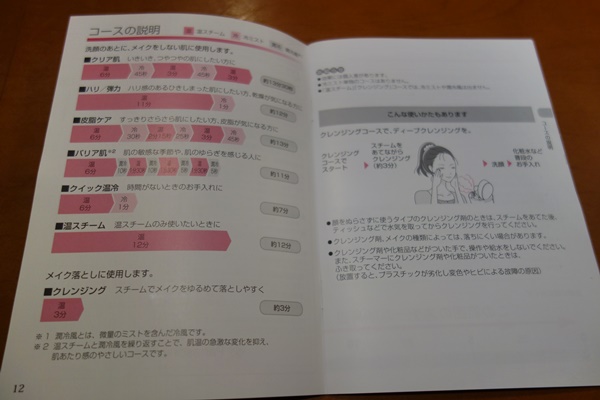 コースの説明
温 温スチーム 冷 冷ミスト
洗顔のあとに、メイクをしない肌に使用します。
■クリア肌 いきいき、つやつやの肌にしたい方に
■ハリ/弾力 ハリ感のあるひきしまった肌にしたい方、乾燥が気になる方に
温 11分
冷 1分
約12分
■皮脂ケア すっきりさらさら肌にしたい方、皮脂が気になる方に
温 6分
冷 30秒
温 3分
冷 45秒
約13分
■バリア肌※2 肌の敏感な季節や、肌のゆらぎを感じる人に
温 6分
約11分
■クイック温冷 時間がないときのお手入れに
温 6分
冷 1分
約7分
■温スチーム 温スチームのみ使いたいときに
温 12分
約12分
メイク落としに使用します。
■クレンジング スチームでメイクをゆるめて落としやすく
温 3分
約3分
※1 潤冷風とは、微量のミストを含んだ冷風です。
※2 温スチームと潤冷風を繰り返すことで、肌温の急激な変化を抑え、
肌あたり感のやさしいコースです。
12
こんな使いかたもあります
クレンジングコースで、ディープクレンジングを。
クレンジング
コースで
スタート
スチームを
あてながら
クレンジング
(約3分)
洗顔
化粧水など
普段の
お手入れ
●顔をぬらさずに使うタイプのクレンジング剤のときは、スチームをあてた後、
ティッシュなどで水気を取ってからクレンジングを行ってください。
●クレンジング剤、メイクの種類によっては、落ちにくい場合があります。
●クレンジング剤や化粧品などがついた手で、操作や給水をしないでください。
また、スチーマーにクレンジング剤や化粧品がついたときは、
ふき取ってください。
(放置すると、プラスチックが劣化し変色やヒビによる故障の原因)